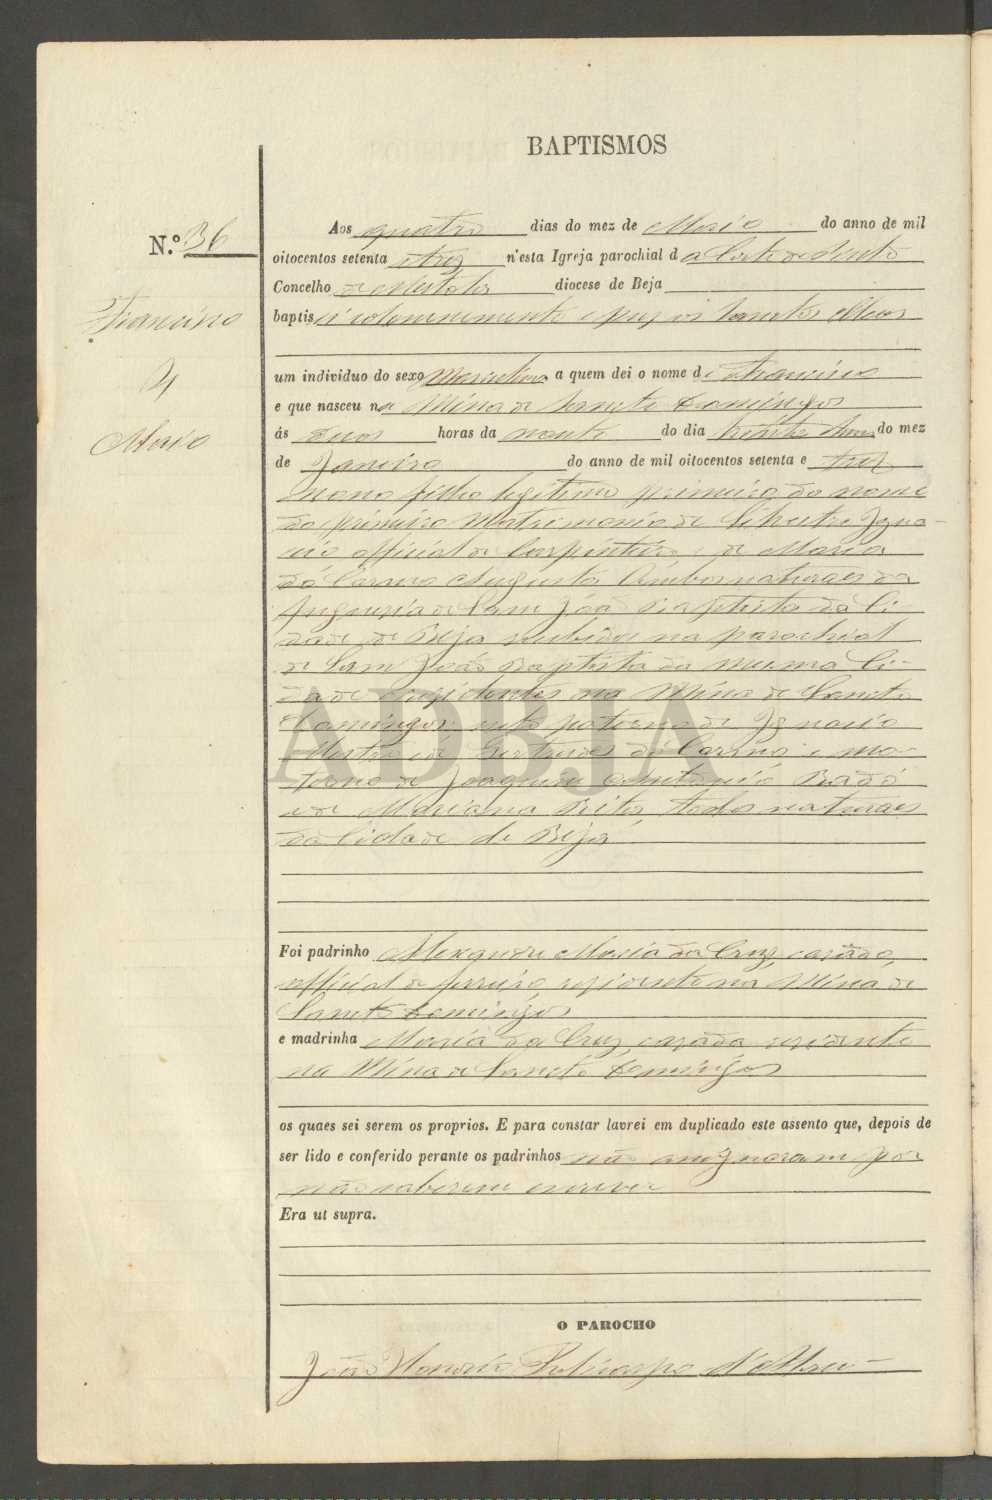 BAPTISMOS
N.º 36
Francisco
4
Maio
Aos quatro dias do mez de Maio do anno de mil
oitocentos setenta e trez n'esta Igreja parochial da Corte do Pinto
Concelho de Mertola diocese de Beja
baptisei solemnemente e puz os Sanctos Oleos
um individuo do sexo Masculino a quem dei o nome de Francisco
e que nasceu na Mina de Sancto Domingos
ás duas horas da noute do dia trinta do mez
de Janeiro do anno de mil oitocentos setenta e trez
filho legitimo primeiro do nome
do primeiro Matrimonio de Silvestre Igna-
cio official de Carpinteiro e de Maria
do Carmo Augusta Ambos naturaes da
freguesia de Sam João Baptista da Ci-
dade de Beja recebidos na parochial
de Sam João Baptista da mesma Ci-
dade e residentes na Mina de Sancto
Domingos, neto paterno de Ignacio
Mestre e de Gertrudes do Carmo e ma-
terno de Joaquim Antonio
e de Marianna Rita, todos naturaes
da Cidade de Beja
Foi padrinho Alexandre Maria da Cruz, casado,
official de ferreiro, residente na Mina de
Sancto Domingos
e madrinha Maria da Cruz, casada residente
na Mina de Sancto Domingos
os quaes sei serem os proprios. E para constar lavrei em duplicado este assento que, depois de
ser lido e conferido perante os padrinhos não assignaram por
não saberem escrever
Era ut supra.
O PAROCHO
João Honorio Policarpo d'Abreu
ADBJA